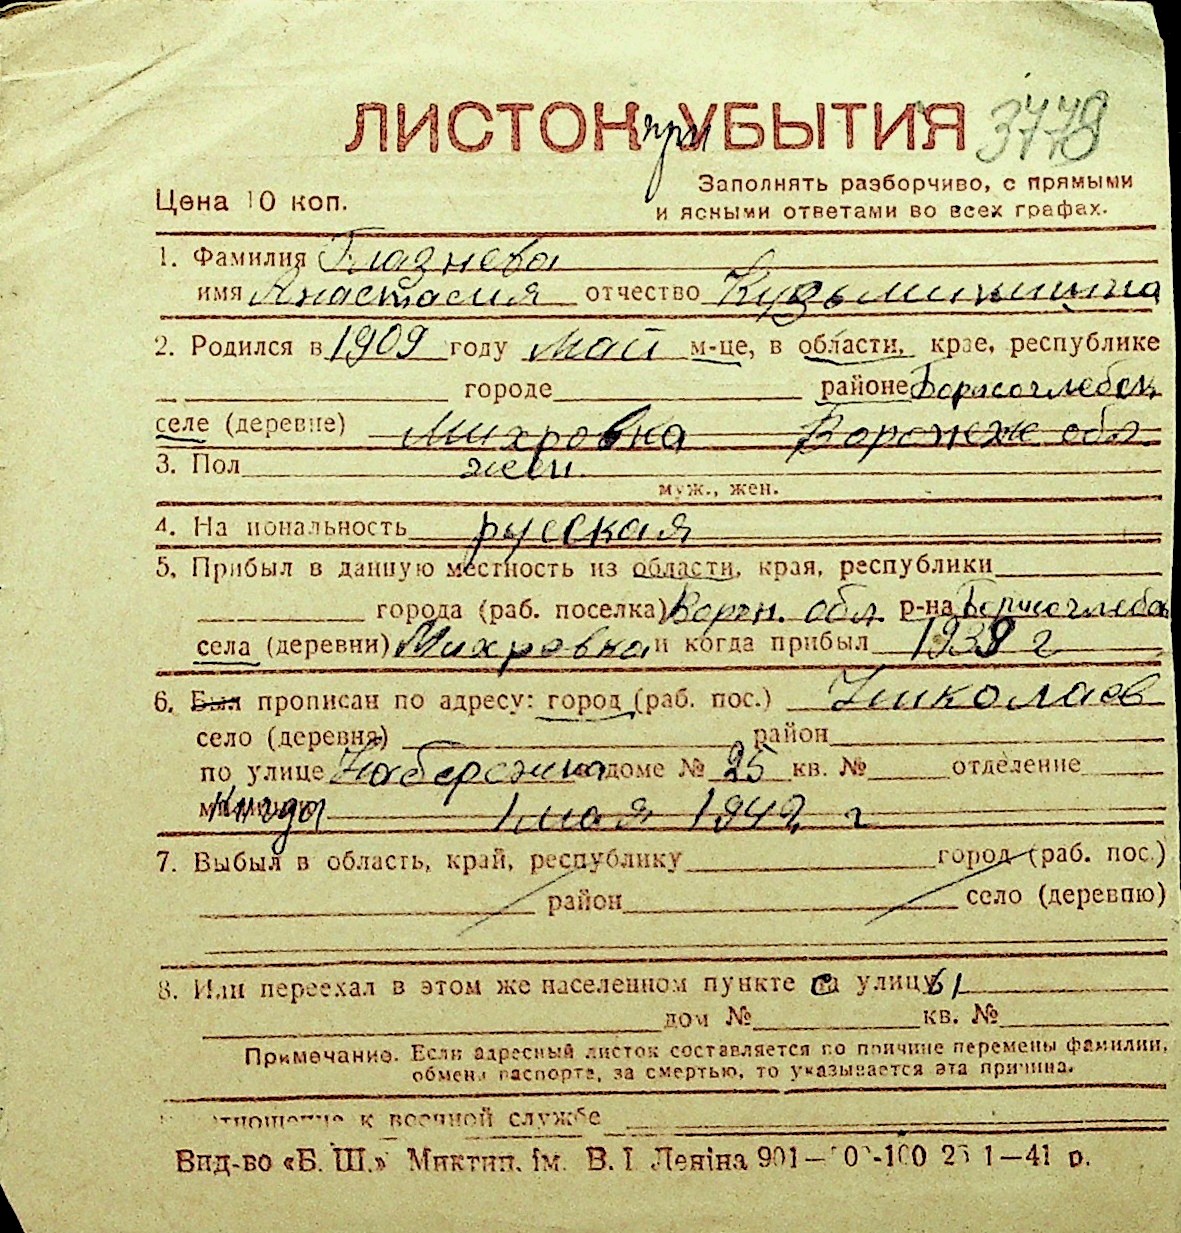 ЛИСТОК при УБЫТИЯ 3778
Цена 10 коп.
Заполнять разборчиво, с прямыми
и ясными ответами во всех графах.
1. Фамилия Глазнева
имя Анастасия отчество Кузьминишна
2. Родился в 1909 году май м-це, в области, крае, республике
городе районе Борисоглебск
селе (деревне) Михровка Воронеж обл.
3. Пол жен.
муж., жен.
4. Национальность русская
5. Прибыл в данную местность из области, края, республики
города (раб. поселка) Ворон. обл. р-на Борисоглебск
села (деревни) Михровка и когда прибыл 1938 г
6. Был прописан по адресу: город (раб. пос.) Николаев
село (деревня) район
по улице Набережна доме № 25 кв. № отделение
Когда 1 мая 1942 г
7. Выбыл в область, край, республику город (раб. пос.)
район село (деревню)
8. Или переехал в этом же населенном пункте с улицы
дом № кв. №
Примечание. Если адресный листок составляется по причине перемены фамилии,
обмена паспорта, за смертью, то указывается эта причина.
отношение к военной службе
Вид-во «Б. Ш.» Миктип. ім. В. І Леніна 901— 1—41 р.